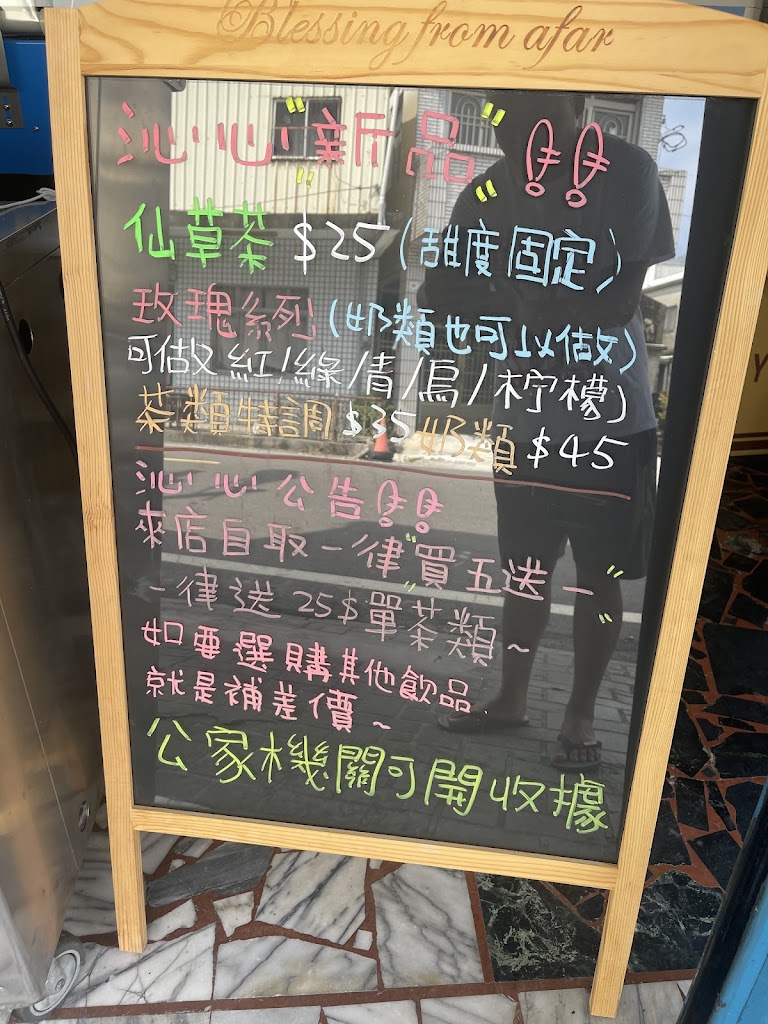 Blessing from afar
沁心"新品"!!
仙草茶 $25(甜度固定)
玫瑰系列(奶類也可以做)
可做紅/綠/青/烏/柠檬)
茶類特調$35奶類$45
沁心公告!!
來店自取一律"買五送一"
一律送25$單茶類~
如要選購其他飲品
就是補差價~
公家機關可開收據